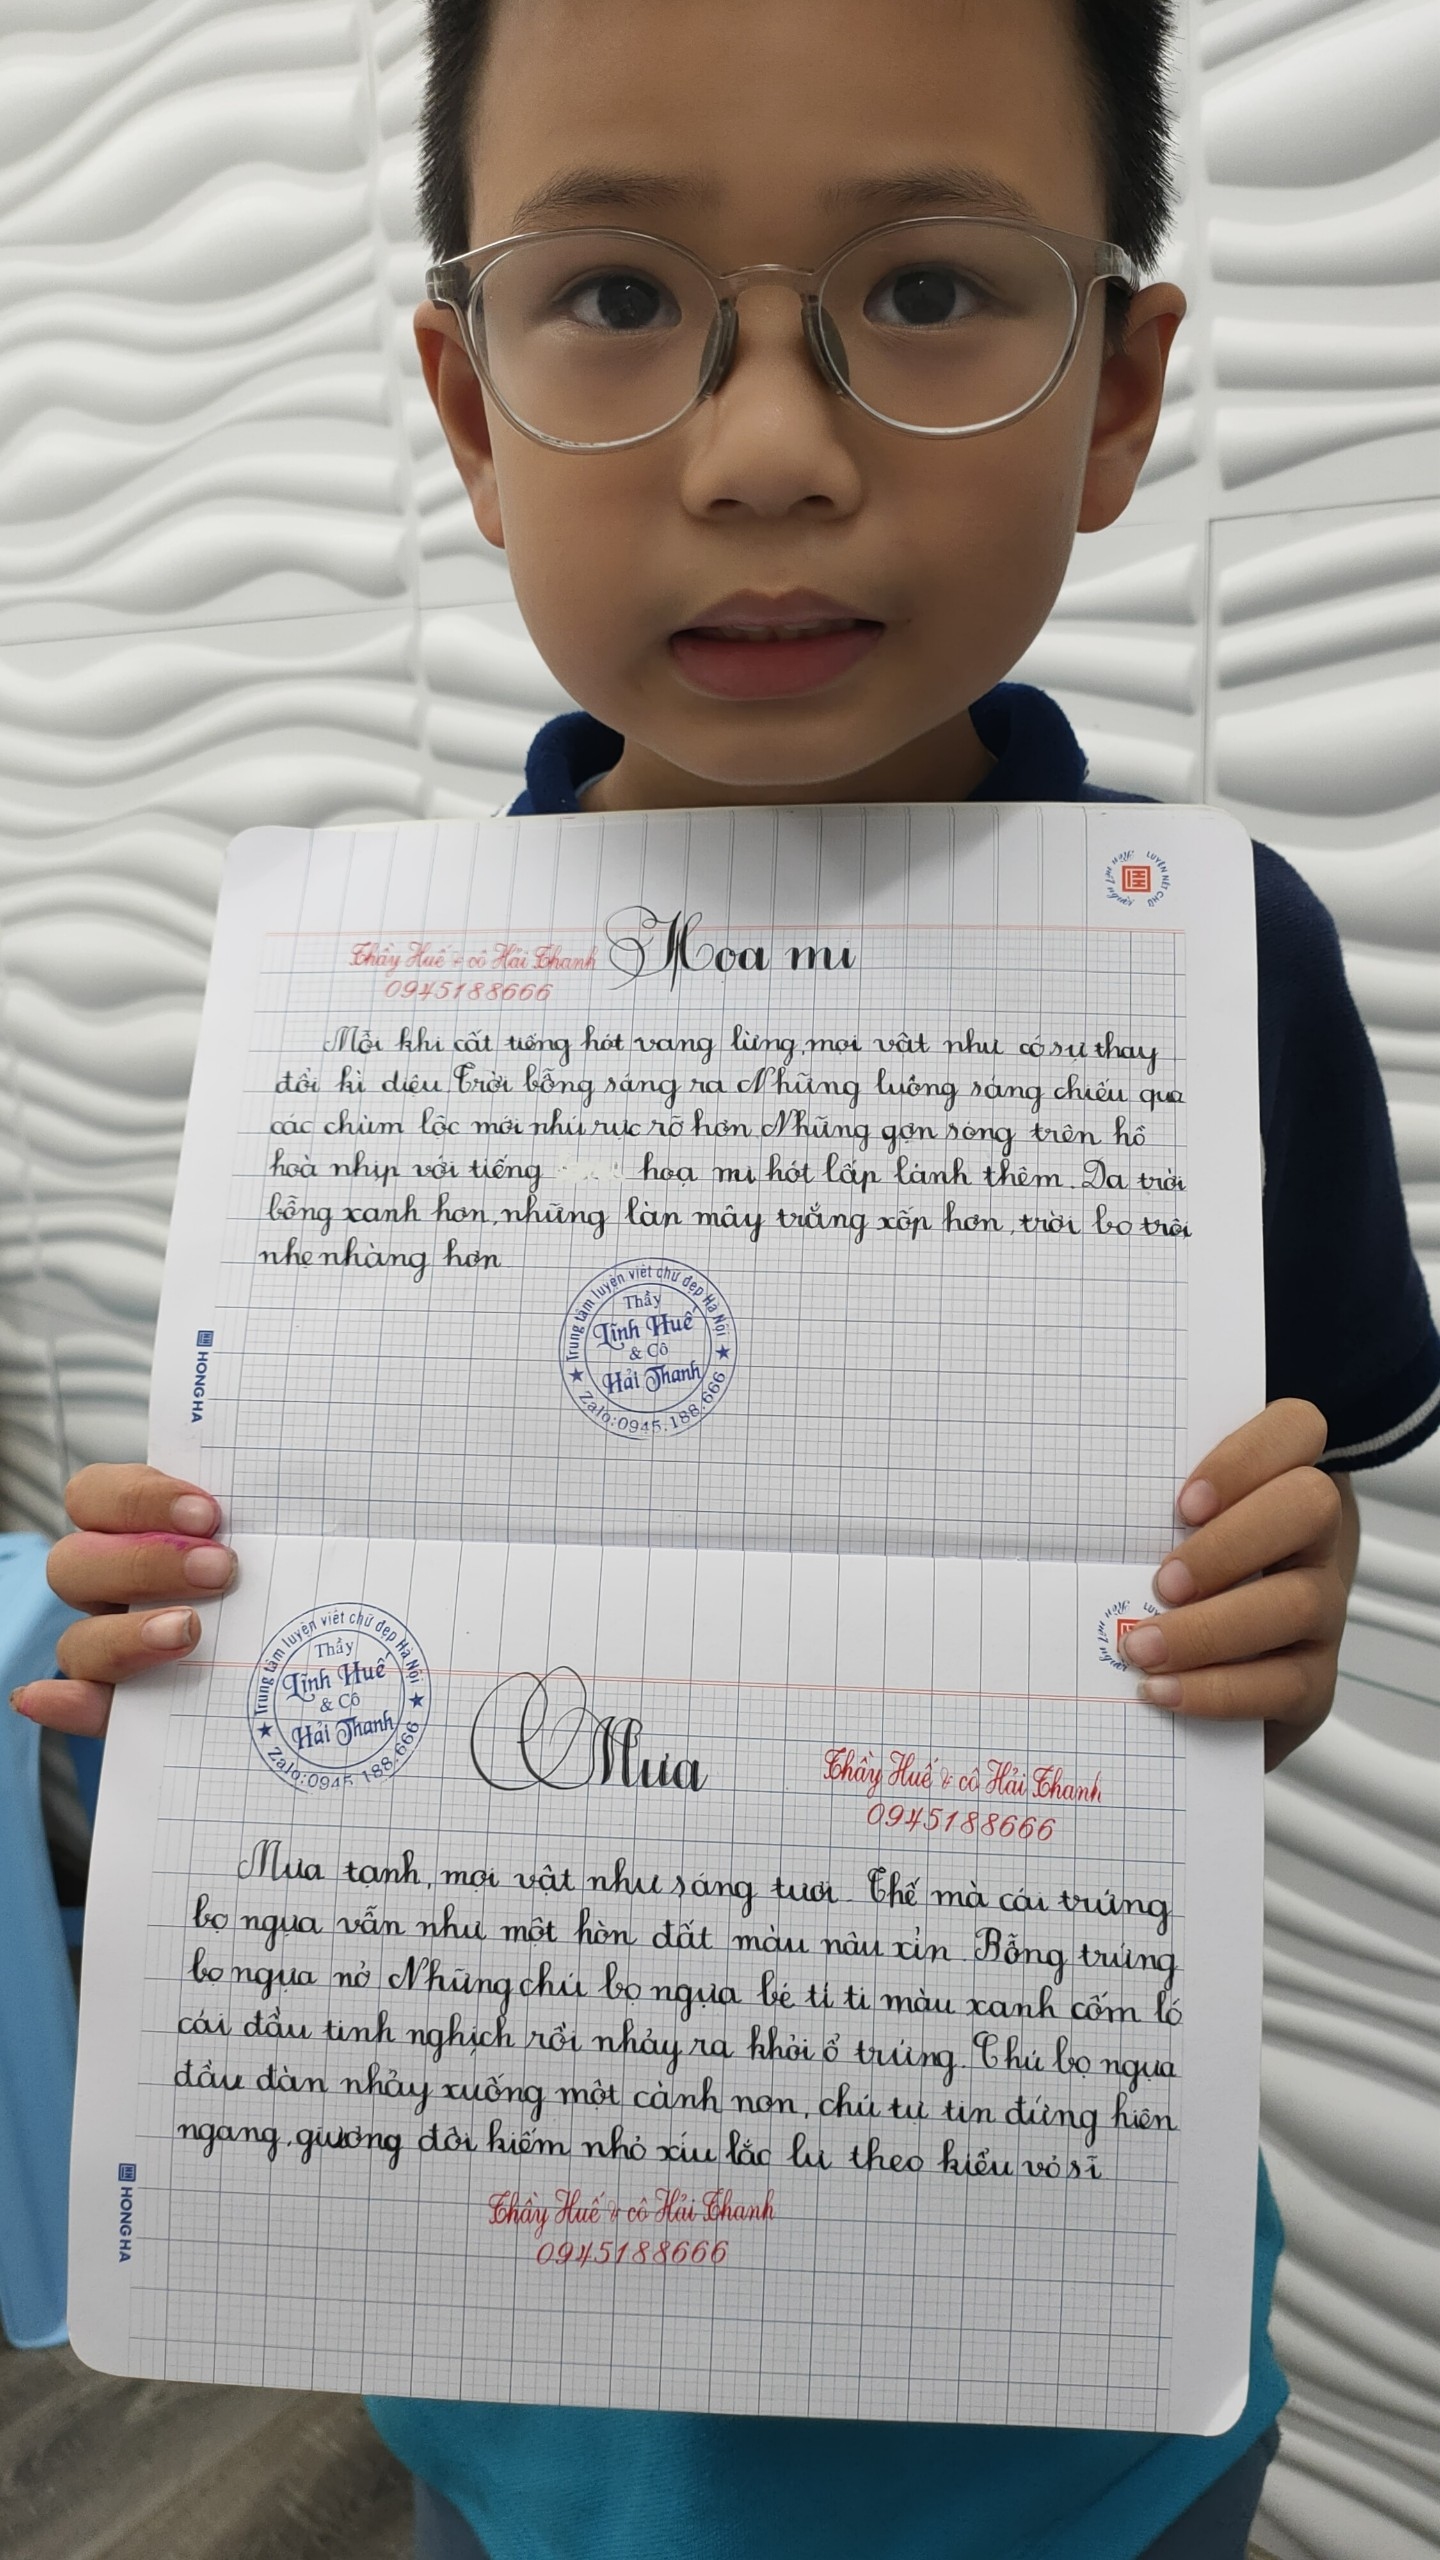 LUYỆN NÉT CHỮ
Rèn nết người
Hoạ mi
Thầy Huế & cô Hải Thanh
0945188666
Mỗi khi cất tiếng hót vang lừng, mọi vật như có sự thay
đổi kì diệu Trời bỗng sáng ra Những luồng sáng chiếu qua
các chùm lộc mới nhú rực rỡ hơn Những gợn sóng trên hồ
hoà nhịp với tiếng hoạ mi hót lấp lánh thêm. Da trời
bỗng xanh hơn, những làn mây trắng xốp hơn, trời bo trôi
nhẹ nhàng hơn
Trung tâm luyện viết chữ đẹp Hà Nội
Thầy
Lĩnh Huế
& Cô
Hải Thanh
Zalo:0945.188.666
HONG HA
Trung tâm luyện viết chữ đẹp Hà Nội
Thầy
Lĩnh Huế
& Cô
Hải Thanh
Zalo:0945.188.666
Mưa
Thầy Huế & cô Hải Thanh
0945188666
Mưa tạnh, mọi vật như sáng tươi. Thế mà cái trứng
bọ ngựa vẫn như một hòn đất màu nâu xỉn. Bỗng trứng
bọ ngựa nở Những chú bọ ngựa bé tí ti màu xanh cốm ló
cái đầu tinh nghịch rồi nhảy ra khỏi ổ trứng. Chú bọ ngựa
đầu đàn nhảy xuống một cành non, chú tự tin đứng hiên
ngang, giương đôi kiếm nhỏ xíu lắc lư theo kiểu võ sĩ
Thầy Huế & cô Hải Thanh
0945188666
HONG HA